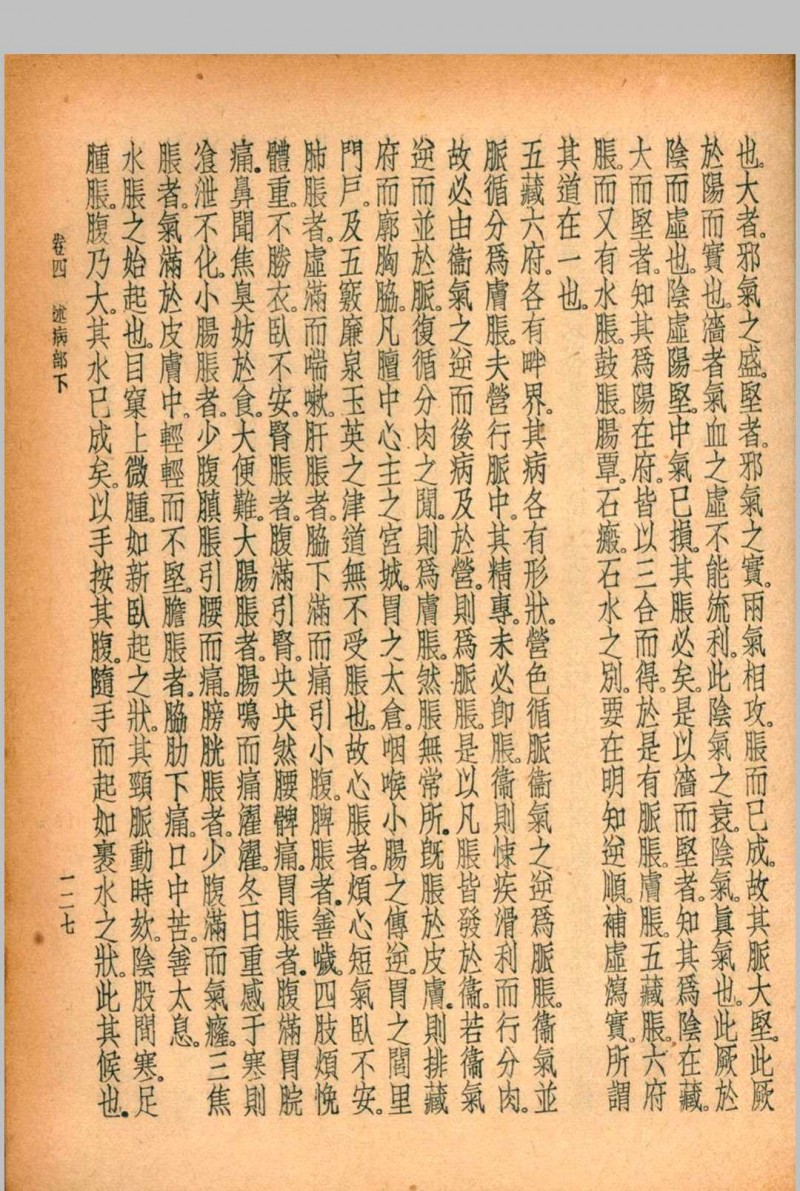 也。大者。邪氣之盛。堅者。邪氣之實。兩氣相攻。脹而已成。故其脈大堅。此厥
於陽而實也。濇者氣血之虛不能流利。此陰氣之衰。陰氣。眞氣也。此厥於
陰而虛也。陰虛陽堅。中氣已損。其脹必矣。是以濇而堅者。知其爲陰在藏。
大而堅者。知其爲陽在府。皆以三合而得。於是有脈脹。膚脹。五藏脹。六府
脹。而又有水脹。鼓脹。腸覃。石瘕。石水之別。要在明知逆順。補虛瀉實。所謂
其道在一也。
五藏六府。各有畔界。其病各有形狀。營色循脈衞氣之逆爲脈脹。衞氣並
脈循分爲膚脹。夫營行脈中。其精專。未必卽脹。衞則悚疾滑利而行分肉。
故必由衞氣之逆而後病及於營。則爲脈脹。是以凡脹皆發於衞。若衞氣
逆而並於脈。復循分肉之閒。則爲膚脹。然脹無常所。旣脹於皮膚。則排藏
府而廓胸脇。凡膻中心主之宮城。胃之太倉。咽喉小腸之傳逆。胃之閻里
門戸。及五竅廉泉玉英之津道無不受脹也。故心脹者。煩心短氣臥不安。
肺脹者。虛滿而喘嗽。肝脹者。脇下滿而痛引小腹。脾脹者。善噦。四肢煩悗
體重。不勝衣。臥不安。腎脹者。腹滿引腎。央央然腰髀痛。胃脹者。腹滿胃脘
痛。鼻聞焦臭妨於食。大便難。大腸脹者。腸鳴而痛濯濯。冬日重感于寒則
飡泄不化。小腸脹者。少腹䐜脹引腰而痛。膀胱脹者。少腹滿而氣癃。三焦
脹者。氣滿於皮膚中。輕輕而不堅。膽脹者。脇肋下痛。口中苦。善太息。
水脹之始起也。目窠上微腫。如新臥起之狀。其頸脈動時欬。陰股間寒。足
腫脹。腹乃大。其水已成矣。以手按其腹。隨手而起如裹水之狀。此其候也。
卷四 述病部下
一二七